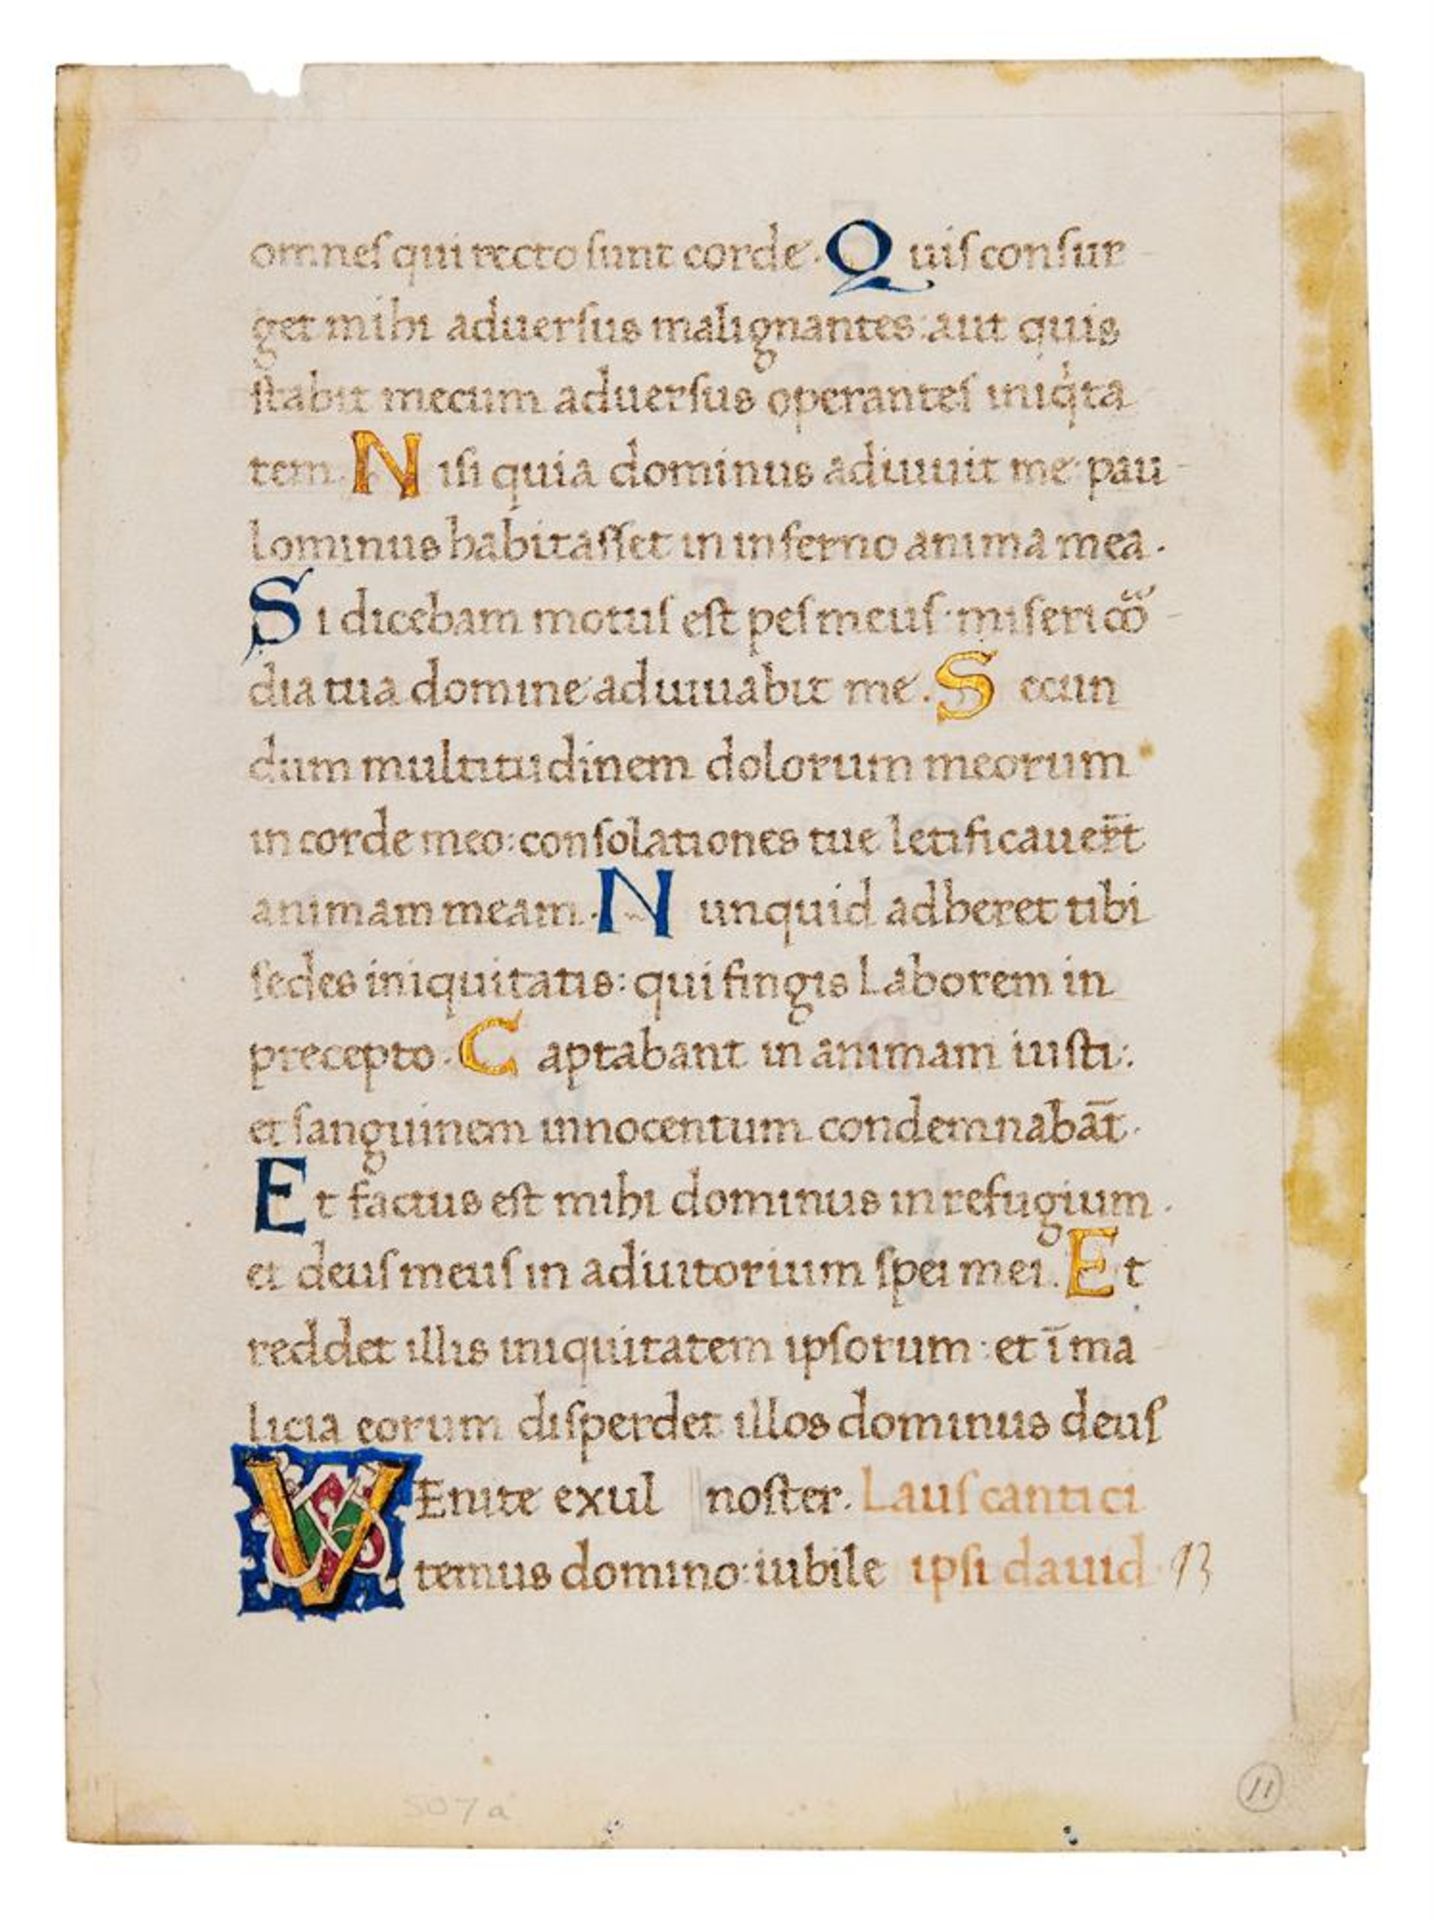 omneſ qui recto ſunt corde. Quiſ conſur
get mihi aduerſus malignantes: aut quis
ſtabit mecum aduerſus operanteſ iniq̇ta
tem. Niſi quia dominus adiuuit me: pau
lominus habitaſſet in inferno anima mea.
Si dicebam motuſ eſt peſ meuſ: miſericoͣ
dia tua domine adiuuabit me. Secun
dum multitudinem dolorum meorum
in corde meo: conſolationes tue letificauer̄t
animam meam. Nunquid adheret tibi
ſedes iniquitatis: qui fingis laborem in
precepto. Captabant in animam iuſti:
et ſanguinem innocentum condemnabāt.
Et factus eſt mihi dominus in refugium.
et deuſ meuſ in adiutorium ſpei mei. Et
reddet illis iniquitatem ipſorum: et ī ma
licia eorum diſperdet illos dominus deuſ
VEnite exul noſter. Lauſ cantici
temus domino: iubile ipſi dauid 93
507a
11